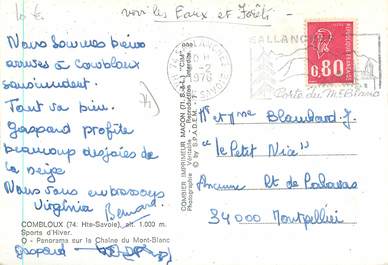 voir les Eaux et Forêts
Nous sommes bien
arrivés à Combloux
Tout va bien.
Gaspard profite
beaucoup des joies de
la neige
Nous vous embrassons
Virginia Bernard
gaspard
COMBLOUX (74. Hte-Savoie), alt. 1.000 m.
Sports d'Hiver.
O - Panorama sur la Chaîne du Mont-Blanc
COMBIER IMPRIMEUR MACON (71. S.-&-L.) "CIM"
Photographie Véritable - Reproduction Interdite
© by S.P.A.D.E.M.
SALLANCHES
1976
HTE SAVOIE
SALLANCHES
Porte du Mt Blanc
0,80
M et Mme Blanchard J.
"le Petit Nice"
Ancienne Rt de Palavas
34000 Montpellier